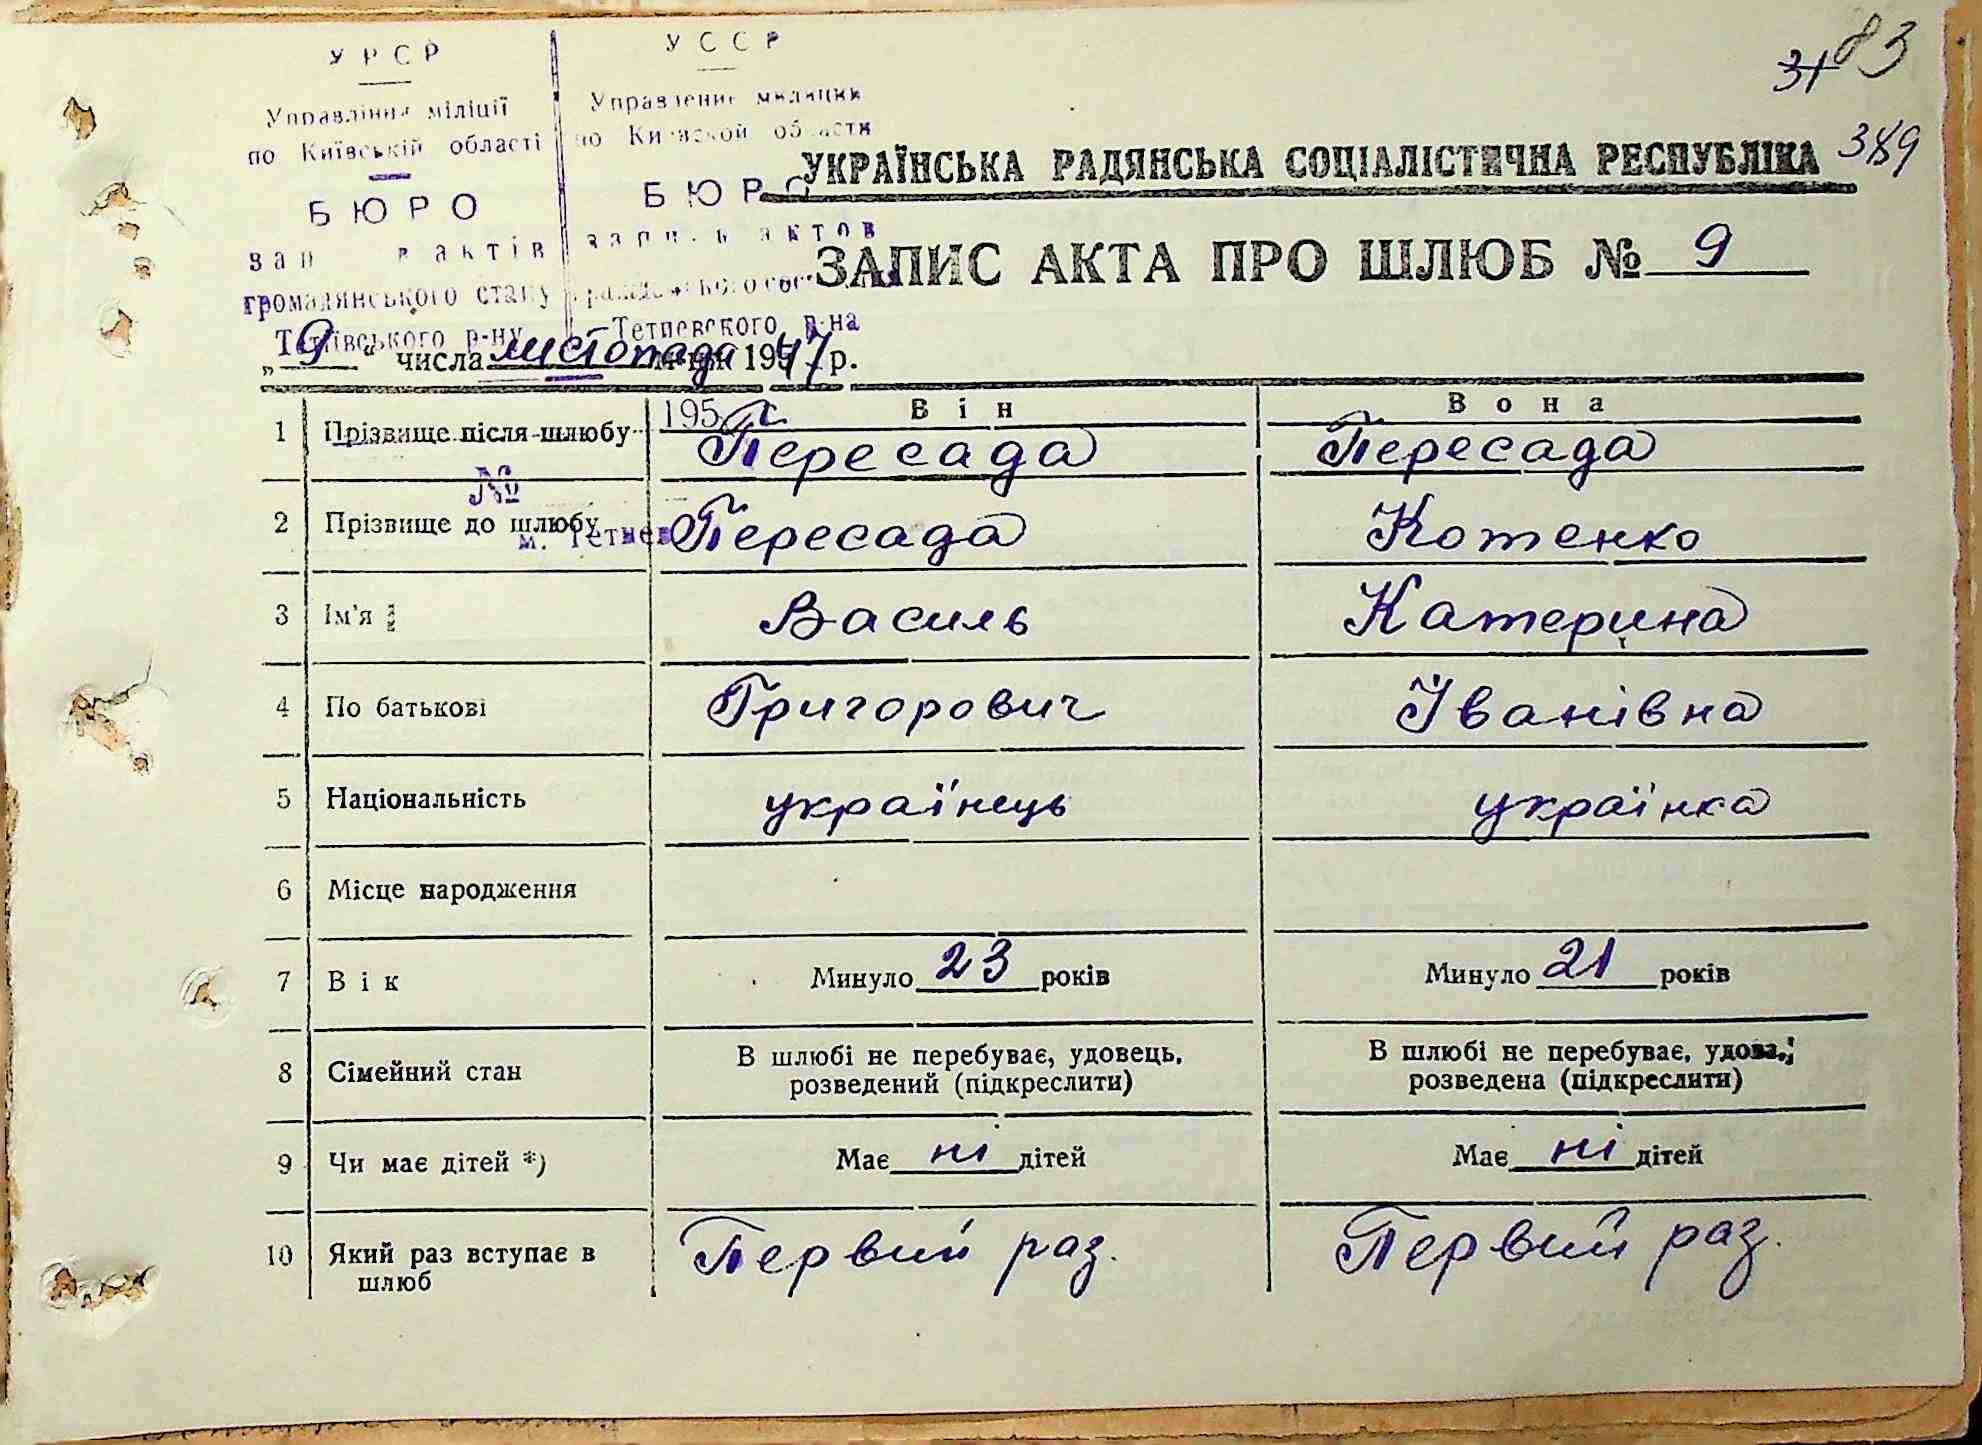 УРСР
Управління міліції
по Київській області
БЮРО
актів
громадянського стану
Тетіївського р-ну
УССР
Управление милиции
по Киевской области
БЮРО
записи актов
Тетиевского р-на
195
№
м. Тетиев
83
31
389
УКРАЇНСЬКА РАДЯНСЬКА СОЦІАЛІСТИЧНА РЕСПУБЛІКА
ЗАПИС АКТА ПРО ШЛЮБ № 9
„ 9 “ числа листопада 1947 р.
Він Вона
1 Прізвище після шлюбу Пересада Пересада
2 Прізвище до шлюбу Пересада Котенко
3 Ім'я Василь Катерина
4 По батькові Григорович Іванівна
5 Національність українець українка
6 Місце народження
7 Вік Минуло 23 років Минуло 21 років
8 Сімейний стан В шлюбі не перебуває, удовець, розведений (підкреслити) В шлюбі не перебуває, удова, розведена (підкреслити)
9 Чи має дітей *) Має ні дітей Має ні дітей
10 Який раз вступає в шлюб Первий раз. Первий раз.